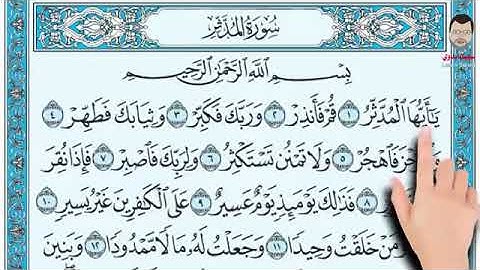 سُورَةُ المُدَّثِّرِ
بِسْمِ اللَّهِ الرَّحْمَٰنِ الرَّحِيمِ
يَٰٓأَيُّهَا الْمُدَّثِّرُ ١ قُمْ فَأَنذِرْ ٢ وَرَبَّكَ فَكَبِّرْ ٣ وَثِيَابَكَ فَطَهِّرْ ٤
فَاهْجُرْ ٥ وَلَا تَمْنُن تَسْتَكْثِرُ ٦ وَلِرَبِّكَ فَاصْبِرْ ٧ فَإِذَا نُقِرَ
٨ فَذَٰلِكَ يَوْمَئِذٍ يَوْمٌ عَسِيرٌ ٩ عَلَى الْكَٰفِرِينَ غَيْرُ يَسِيرٍ ١٠
وَمَنْ خَلَقْتُ وَحِيدًا ١١ وَجَعَلْتُ لَهُۥ مَالًا مَّمْدُودًا ١٢ وَبَنِينَ